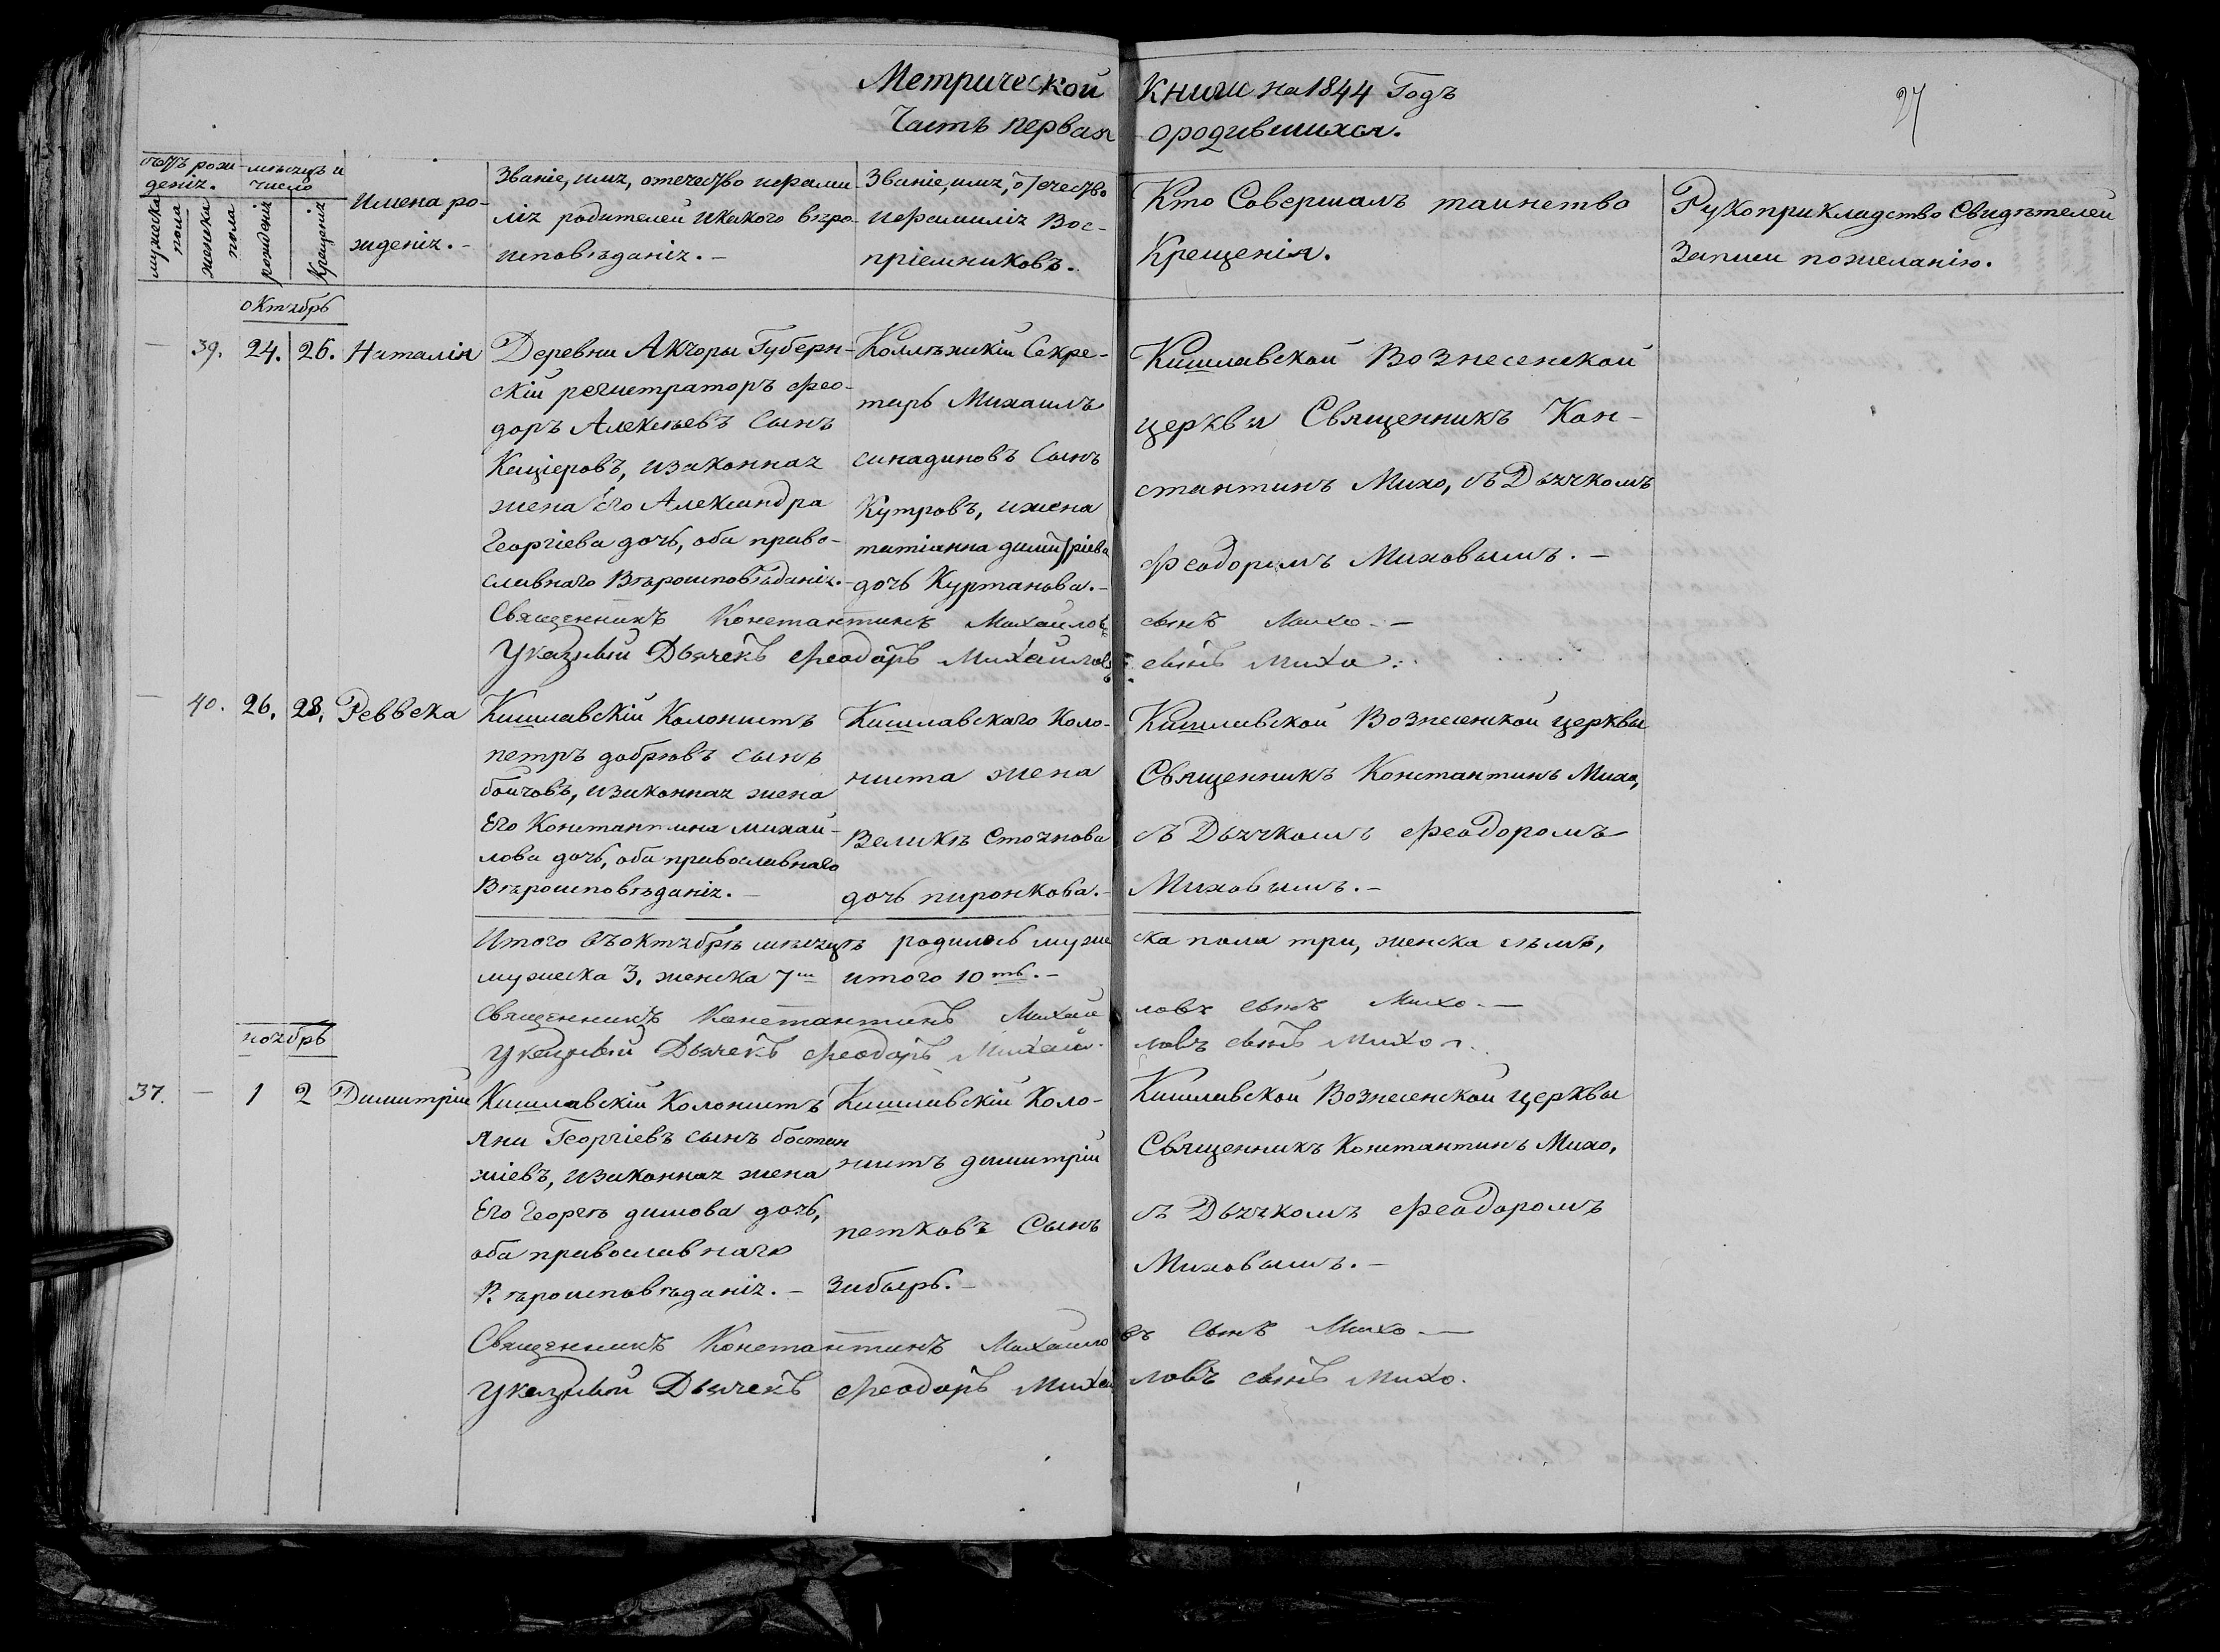 Метрической Книги на 1844 Годъ
Часть первая о родившихся.
27
счетъ рож-
денія.
мѣсяцъ и
число
мужеска пола
женска пола
рожденія
Крещенія
Имена ро-
жденіх.-
Званіе, имя, отечество ифами-
лія родителей икакого вѣро-
исповѣданія.-
Званіе, имя, отечество
ифамилія Вос-
пріемниковъ.
Кто Совершалъ таинство
Крещенія.
Рукоприкладство Свидѣтелей
Записи пожеланію.
октябрь
— 39. 24. 26. Наталія
Деревни Акчоры Губерн-
скій регистраторъ Фео-
доръ Алексѣевъ Сынъ
Кащеровъ, изаконная
жена Его Александра
Георгіева дочь, оба право-
славнаго Вѣроисповѣданія.-
Коллѣжскій Секре-
тарь Михаилъ
синадиновъ Сынъ
Кутровъ, ижена
татіанна димитріева
дочь Куртанова.-
Кишлавской Вознесенской
церквы Священникъ Кон-
стантинъ Михо, съ Дьячкомъ
Феодоромъ Миховымъ.-
Священникъ Константинъ Михаиловъ сынъ Михо.-
Указный Дьячекъ Феодоръ Михаиловъ сынъ Михо.
— 40. 26. 28. Реввека
Кишлавскій Колонистъ
петръ добрювъ сынъ
бойчовъ, изаконная жена
Его Константина михаи-
лова дочь, оба православнаго
Вѣроисповѣданія.-
Кишлавскаго Коло-
ниста жена
Великѣ Стоянова
дочь пиронкова.-
Кишлавской Вознесенской церквы
Священникъ Константинъ Михо,
съ Дьячкомъ Феодоромъ
Миховымъ.-
Итого въоктябрѣ мѣсяцѣ родилось муже ска пола три, женска семь,
мужеска 3. женска 7 итого 10ть.-
Священникъ Константинъ Михаи ловъ сынъ Михо.-
Указный Дьячекъ Феодоръ Михаи- ловъ сынъ Михо.
ноябрь
37. — 1 2 Димитрій
Кишлавскій Колонистъ
Яни Георгіевъ сынъ бостан
жіевъ, изаконная жена
Его Георгѣ димова дочь,
оба православнаго
Вѣроисповѣданія.-
Кишлавскій Коло-
нистъ димитрій
петковъ Сынъ
Зибырь.-
Кишлавской Вознесенской церквы
Священникъ Константинъ Михо,
съ Дьячкомъ Феодоромъ
Миховымъ.-
Священникъ Константинъ Михаило въ сынъ Михо.-
Указный Дьячекъ Феодоръ Михаи ловъ сынъ Михо.